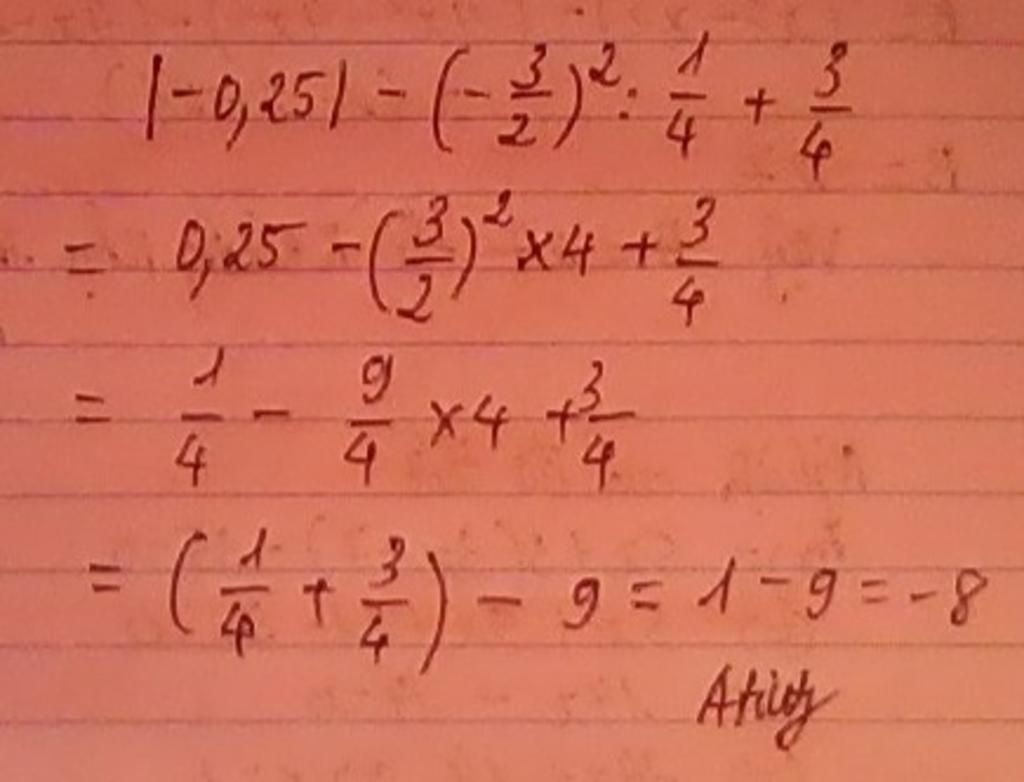 |-0,25| - (-3/2)² : 1/4 + 3/4
= 0,25 - (3/2)² × 4 + 3/4
= 1/4 - 9/4 × 4 + 3/4
= (1/4 + 3/4) - 9 = 1 - 9 = -8